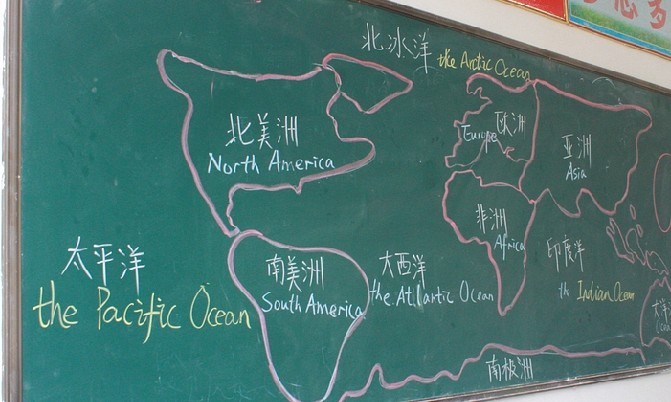 北冰洋
the Arctic Ocean
北美洲
North America
欧洲
Europe
亚洲
Asia
非洲
Africa
太平洋
the Pacific Ocean
南美洲
South America
大西洋
the Atlantic Ocean
印度洋
the Indian Ocean
南极洲